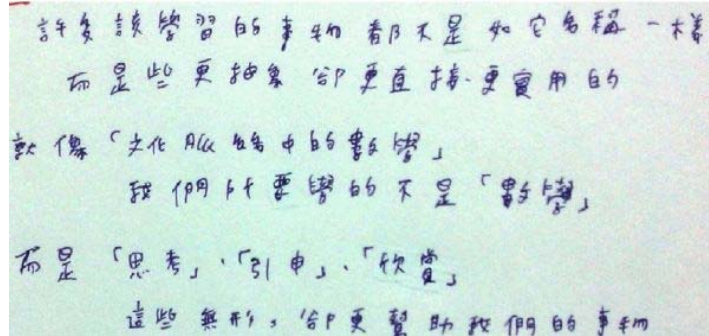 許多該學習的事物都不是如它名稱一樣
而是些更抽象卻更直接.更實用的
就像「文化脈絡中的數學」
我們所要學的不是「數學」
而是「思考」、「引申」、「欣賞」
這些無形，卻更幫助我們的事物